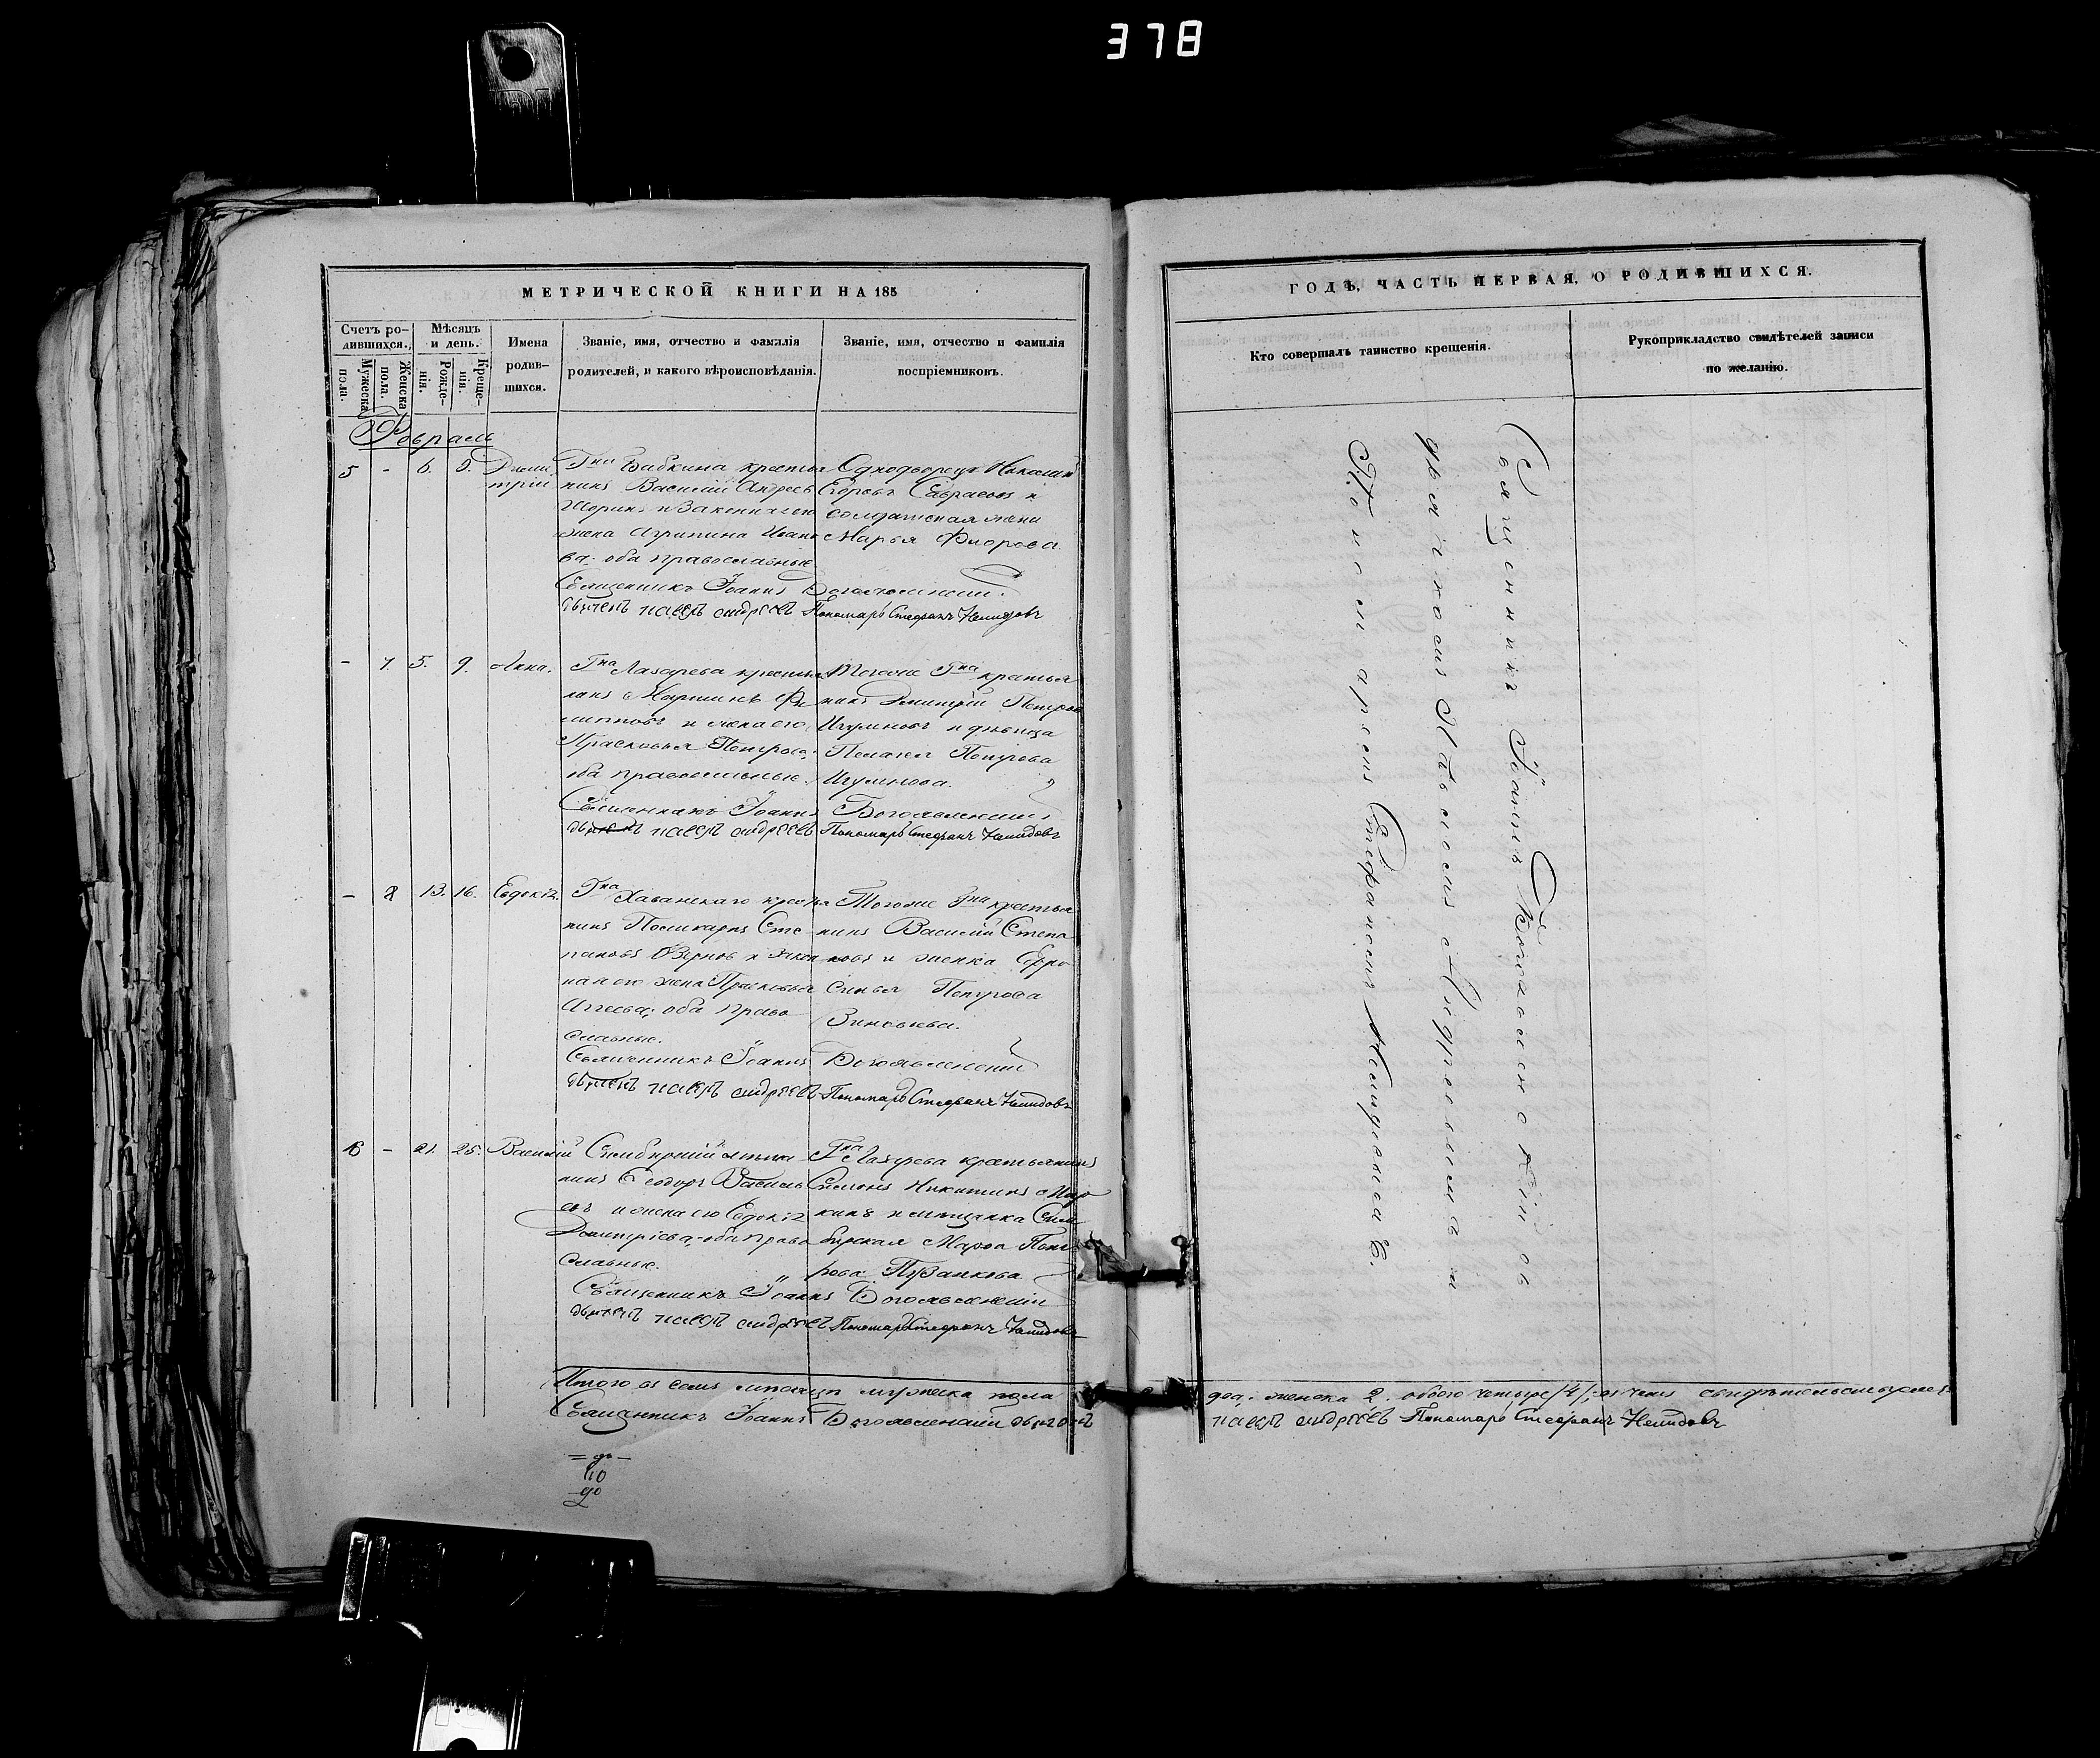 378
МЕТРИЧЕСКОЙ КНИГИ НА 185
Счетъ ро-
дившихся.
Мужеска
пола.
Женска
пола.
Мѣсяцъ
и день.
Рожде-
нія.
Креще-
нія.
Имена
родив-
шихся.
Званіе, имя, отчество и фамилія
родителей, и какого вѣроисповѣданія.
Званіе, имя, отчество и фамилія
воспріемниковъ.
Февраль
5 - 6. 9. Дими
трій
Гна Бабкина крестья
нинъ Василій Андреевъ
и законная его
жена Агрипина Ивано
ва; оба православные
Однодворецъ
Егоровъ и
солдатская жена
Марья Фролова.
Священникъ Іоаннъ Богоявленскій.
дьячекъ павелъ андреевъ Пономарь Стефанъ Немидовъ
- 7. 5. 9. Анна.
Гна Лазарева крестья
нинъ Мартинъ Фи
липповъ и жена его
Прасковья Петрова;
оба православные.
Тогоже Гна крестья
нинъ Димитрій Петровъ
Игумновъ и дѣвица
Пелагея Петрова
Игумнова.
Священникъ Іоаннъ Богоявленскій
дьячекъ павелъ андреевъ Пономарь Стефанъ Немидовъ
- 8 13. 16. Евдокія.
Гна Хаванскаго крестья
нинъ Поликарпъ Сте-
пановъ и закон
ная его жена Прасковья
оба право
славные.
Тогоже Гна крестья
нинъ Василій Степа
новъ и женка Евфро
синья Петрова
Зиновьева.
Священникъ Іоаннъ Богоявленскій
дьячекъ павелъ андреевъ Пономарь Стефанъ Немидовъ
6 - 21. 25. Василій
Симбирскій мѣща
нинъ Ѳеодоръ Василь
евъ и жена его Евдокія
Димитріева; оба право
славные.
Гна Лазарева крестьянинъ
Симонъ Никитинъ Мар
кинъ и мѣщанка Сим
бирская Марѳа Пет
рова Пузанкова
Священникъ Іоаннъ Богоявленскій
дьячекъ павелъ андреевъ Пономарь Стефанъ Немидовъ
Итого въ семъ мѣсяцѣ мужеска пола
Священникъ Іоаннъ Богоявленскій дьячекъ
ГОДЪ, ЧАСТЬ ПЕРВАЯ, О РОДИВШИХСЯ.
Кто совершалъ таинство крещенія.
Рукоприкладство свидѣтелей записи
по желанію.
Священникъ Іоаннъ Богоявленскій съ
дьячкомъ Павломъ Андреевымъ и
Пономаремъ Стефаномъ Немидовымъ.
два; женска 2. обоего четыре /4/; въ чемъ свидѣтельствуемъ
павелъ андреевъ Пономарь Стефанъ Немидовъ